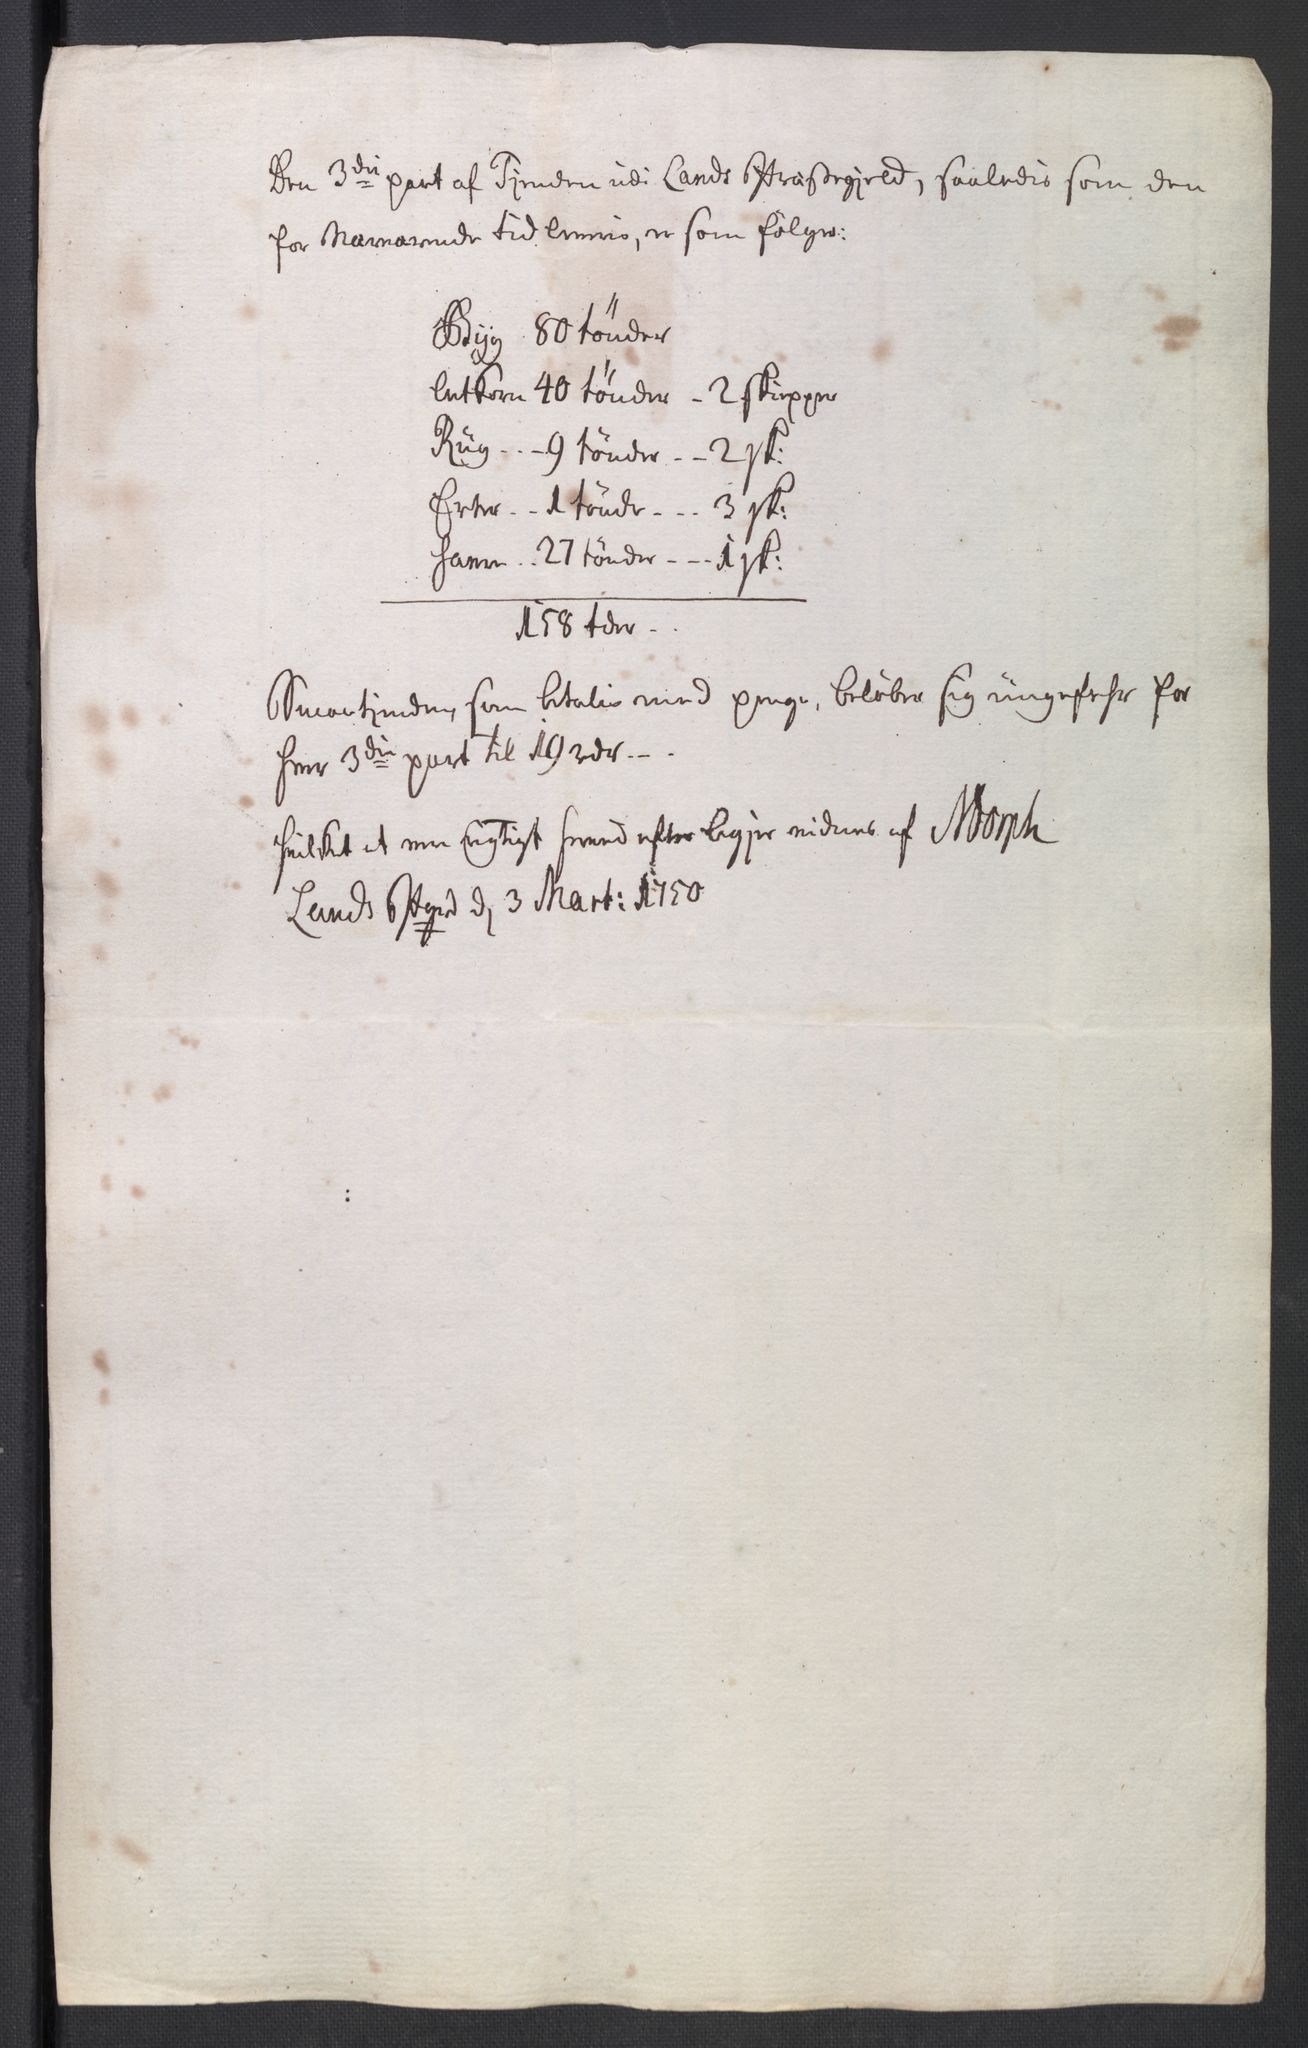 Den 3die part af Tjenden udi Lands Præstegjeld, saaledis som den
for Nærværende tid leveris, er som følger:
Byg 80 tönder
letkorn 40 tönder - 2 skiepper
Rüg - - - 9 tönder - - 2 sk:
Erter - - 1 tönde - - - 3 sk:
Havre - - 27 tönder - - - 1 sk:
158 tdr - .
Smaatienden, som betalis med penge, belöber sig üngefehr for
hver 3die part til 19 rdr - - .
hvilket at være rigtigt herved efter begjer vidnes af NDorph
Lands Pgrd d, 3 Mart: 1750